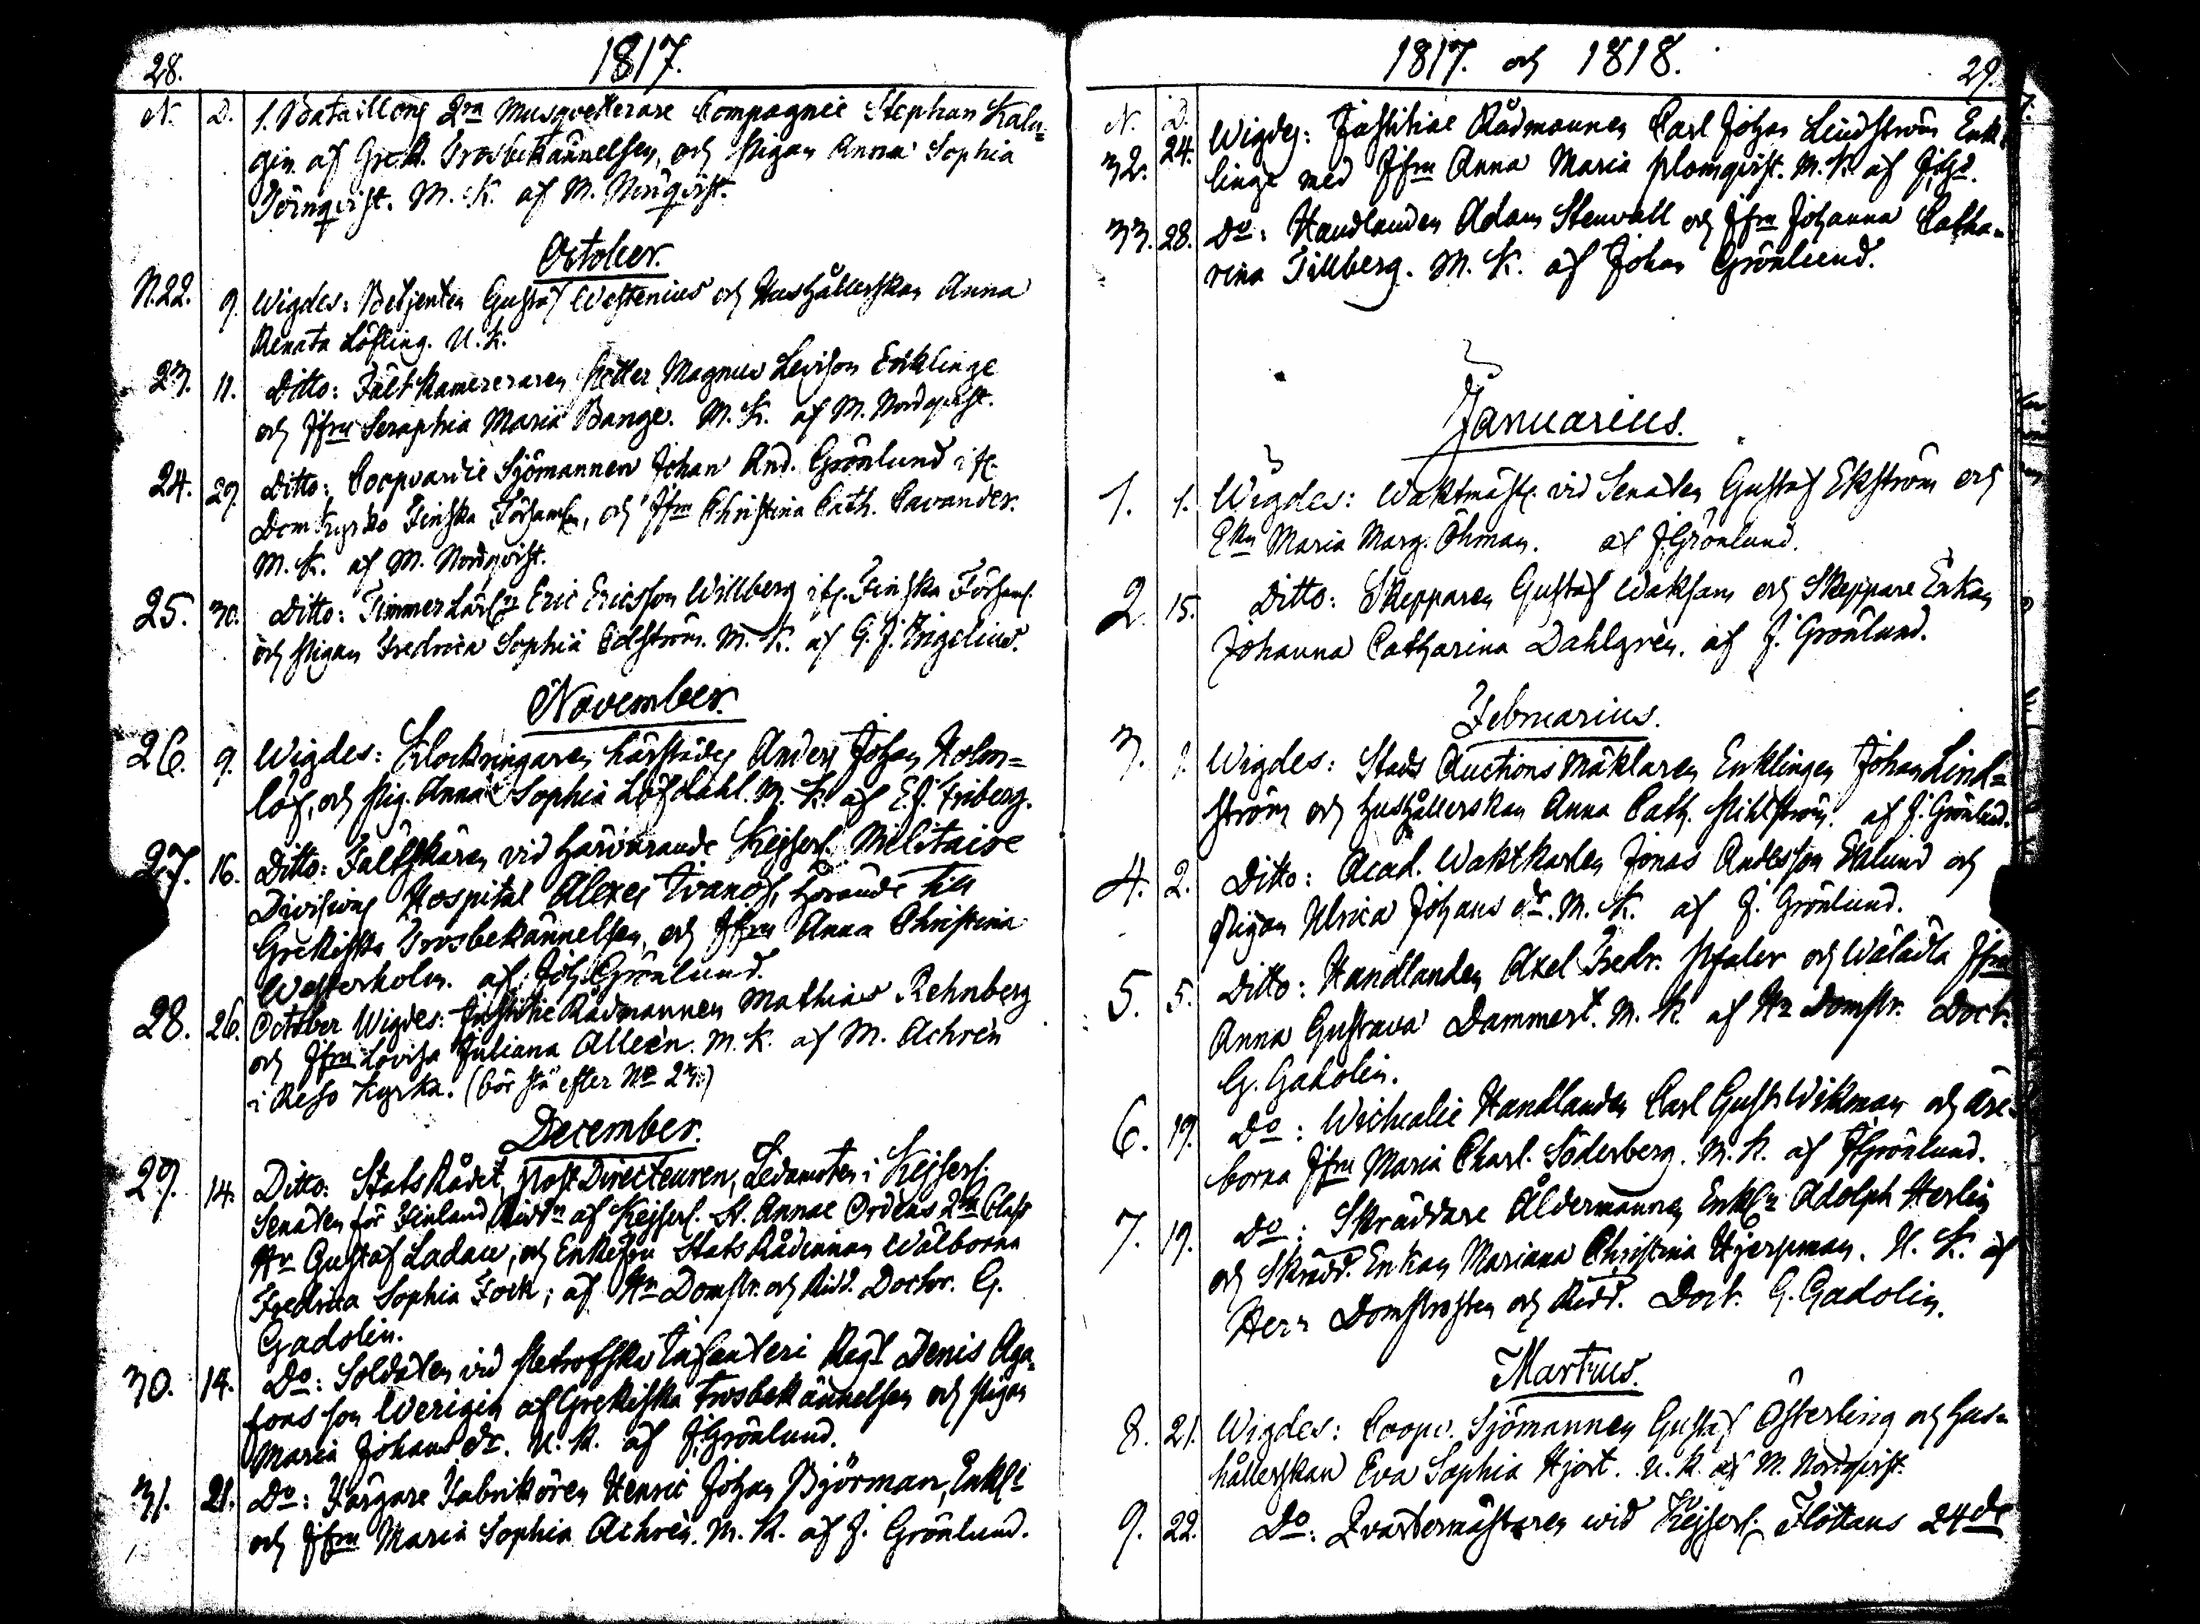 28.
1817.
N. D. 1. Bataillons 2ra Musqvetterare Compagnie Stephan Kalu=
gin af Grek. Trosbekännelsen, och Pigan Anna Sophia
Törnqvist. M. K. af M. Nordqvist.
October.
N.22. 9. Wigdes: Betjenten Gustaf Westenius och Hushållerskan Anna
Renata Löfling. U. K.
23. 11. Ditto: Fält Kamereraren Petter Magnus Levison Enklinge
och Jfru Seraphia Maria Bange. M. K. af M. Nordqvist.
24. 29. Ditto: Coopvardie Sjömannen Johan And. Grönlund i fr.
DomKyrko Finska Församl, och Jfru Christina Cath. Cavander.
M. K. af M. Nordqvist.
25. 30. Ditto: Timmerkarlen Eric Ericsson Willberg i fr. Finska Församl.
och Pigan Fredrica Sophia Edström. M. K. af G. J. Ingelius.
November.
26. 9. Wigdes: Klockringaren härstädes Anders Johan Holm=
löf, och Pig. Anna Sophia Löfdahl. M. K. af E. J. Friberg.
27. 16. Ditto: Fältskären vid härvarande Kejserl. Militaire
Divisions Hospital Alexei Ivanof, hörande till
Grekiska Trosbekännelsen, och Jfru Anna Christina
Westerholm. af Joh. Grönlund.
28. 26. October Wigdes: Justitiæ Rådmannen Mathias Rehnberg
och Jfru Lovisa Juliana Alleèn. M. K. af M. Achrèn
i Reso Kyrka. (bör stå efter No 23.)
December.
29. 14. Ditto: StatsRådet, PostDirecteuren, Ledamoten i Kejserl.
Senaten för Finland Riddn af Kejserl. St. Annæ Ordens 2dra Class
Hr Gustaf Ladau, och Enkefru StatsRådinnan Wälborna
Fredrica Sophia Fock; af Hr Domspr. och Ridd. Doctor. G.
Gadolin.
30. 14. Do: Soldaten vid Petrofska Infanteri Regt Denis Aga=
fonsson Werigin af Grekiska Trosbekännelsen och Pigan
Maria Johansdr. U. K. af J. Grönlund.
31. 21. Do: Färgare Fabrikören Henric Johan Björman, Enkl:
och Jfru Maria Sophia Achrèn. M. K. af J. Grönlund.
1817. och 1818.
29.
N. D.
32. 24. Wigdes: Justitiæ Rådmannen Carl Johan Lindström Enk=
linge med Jfru Anna Maria Blomqvist. M. K. af J. Gr.
33. 28. Do: Handlanden Adam Stenvall och Jfru Johanna Catha=
rina Tillberg. M. K. af Johan Grönlund.
Januarius.
1. 1. Wigdes: Waktmäst. vid Senaten Gustaf Ekström och
Ekn Maria Marg. Öhman. af J. Grönlund.
2. 15. Ditto: Skepparen Gustaf Waksam och Skeppare Enkan
Johanna Catharina Dahlgrèn. af J. Grönlund.
Februarius.
3. 1. Wigdes: Stads Auctions Mäklaren Enklingen Johan Lind=
ström och hushållerskan Anna Cath. Pihlström. af J. Grönlund.
4. 2. Ditto: Acad. Waktkarlen Jonas Andersson Eklund och
Pigan Ulrica Johansdr. M. K. af J. Grönlund.
5. 5. Ditto: Handlanden Axel Fredr. Pfaler och Wälädla Jfru
Anna Gustava Dammert. M. K. af Hr Domspr. Doct.
G. Gadolin.
6. 19. Do: Wictualie Handlanden Carl Gust. Wikman och äre=
borna Jfru Maria Charl. Söderberg. M. K. af J. Grönlund.
7. 19. Do: Skräddare Åldermannen Enkln Adolph Herlin
och Skrädd. Enkan Mariana Christina Hjerpman. U. K. af
Herr Domprosten och Ridd. Doct. G. Gadolin.
Martius.
8. 21. Wigdes: Coopv. Sjömannen Gustaf Österling och hus=
hållerskan Eva Sophia Hjort. U. K. af M. Nordqvist.
9. 22. Do: Qvartermästaren wid Kejserl. Flottans 24de